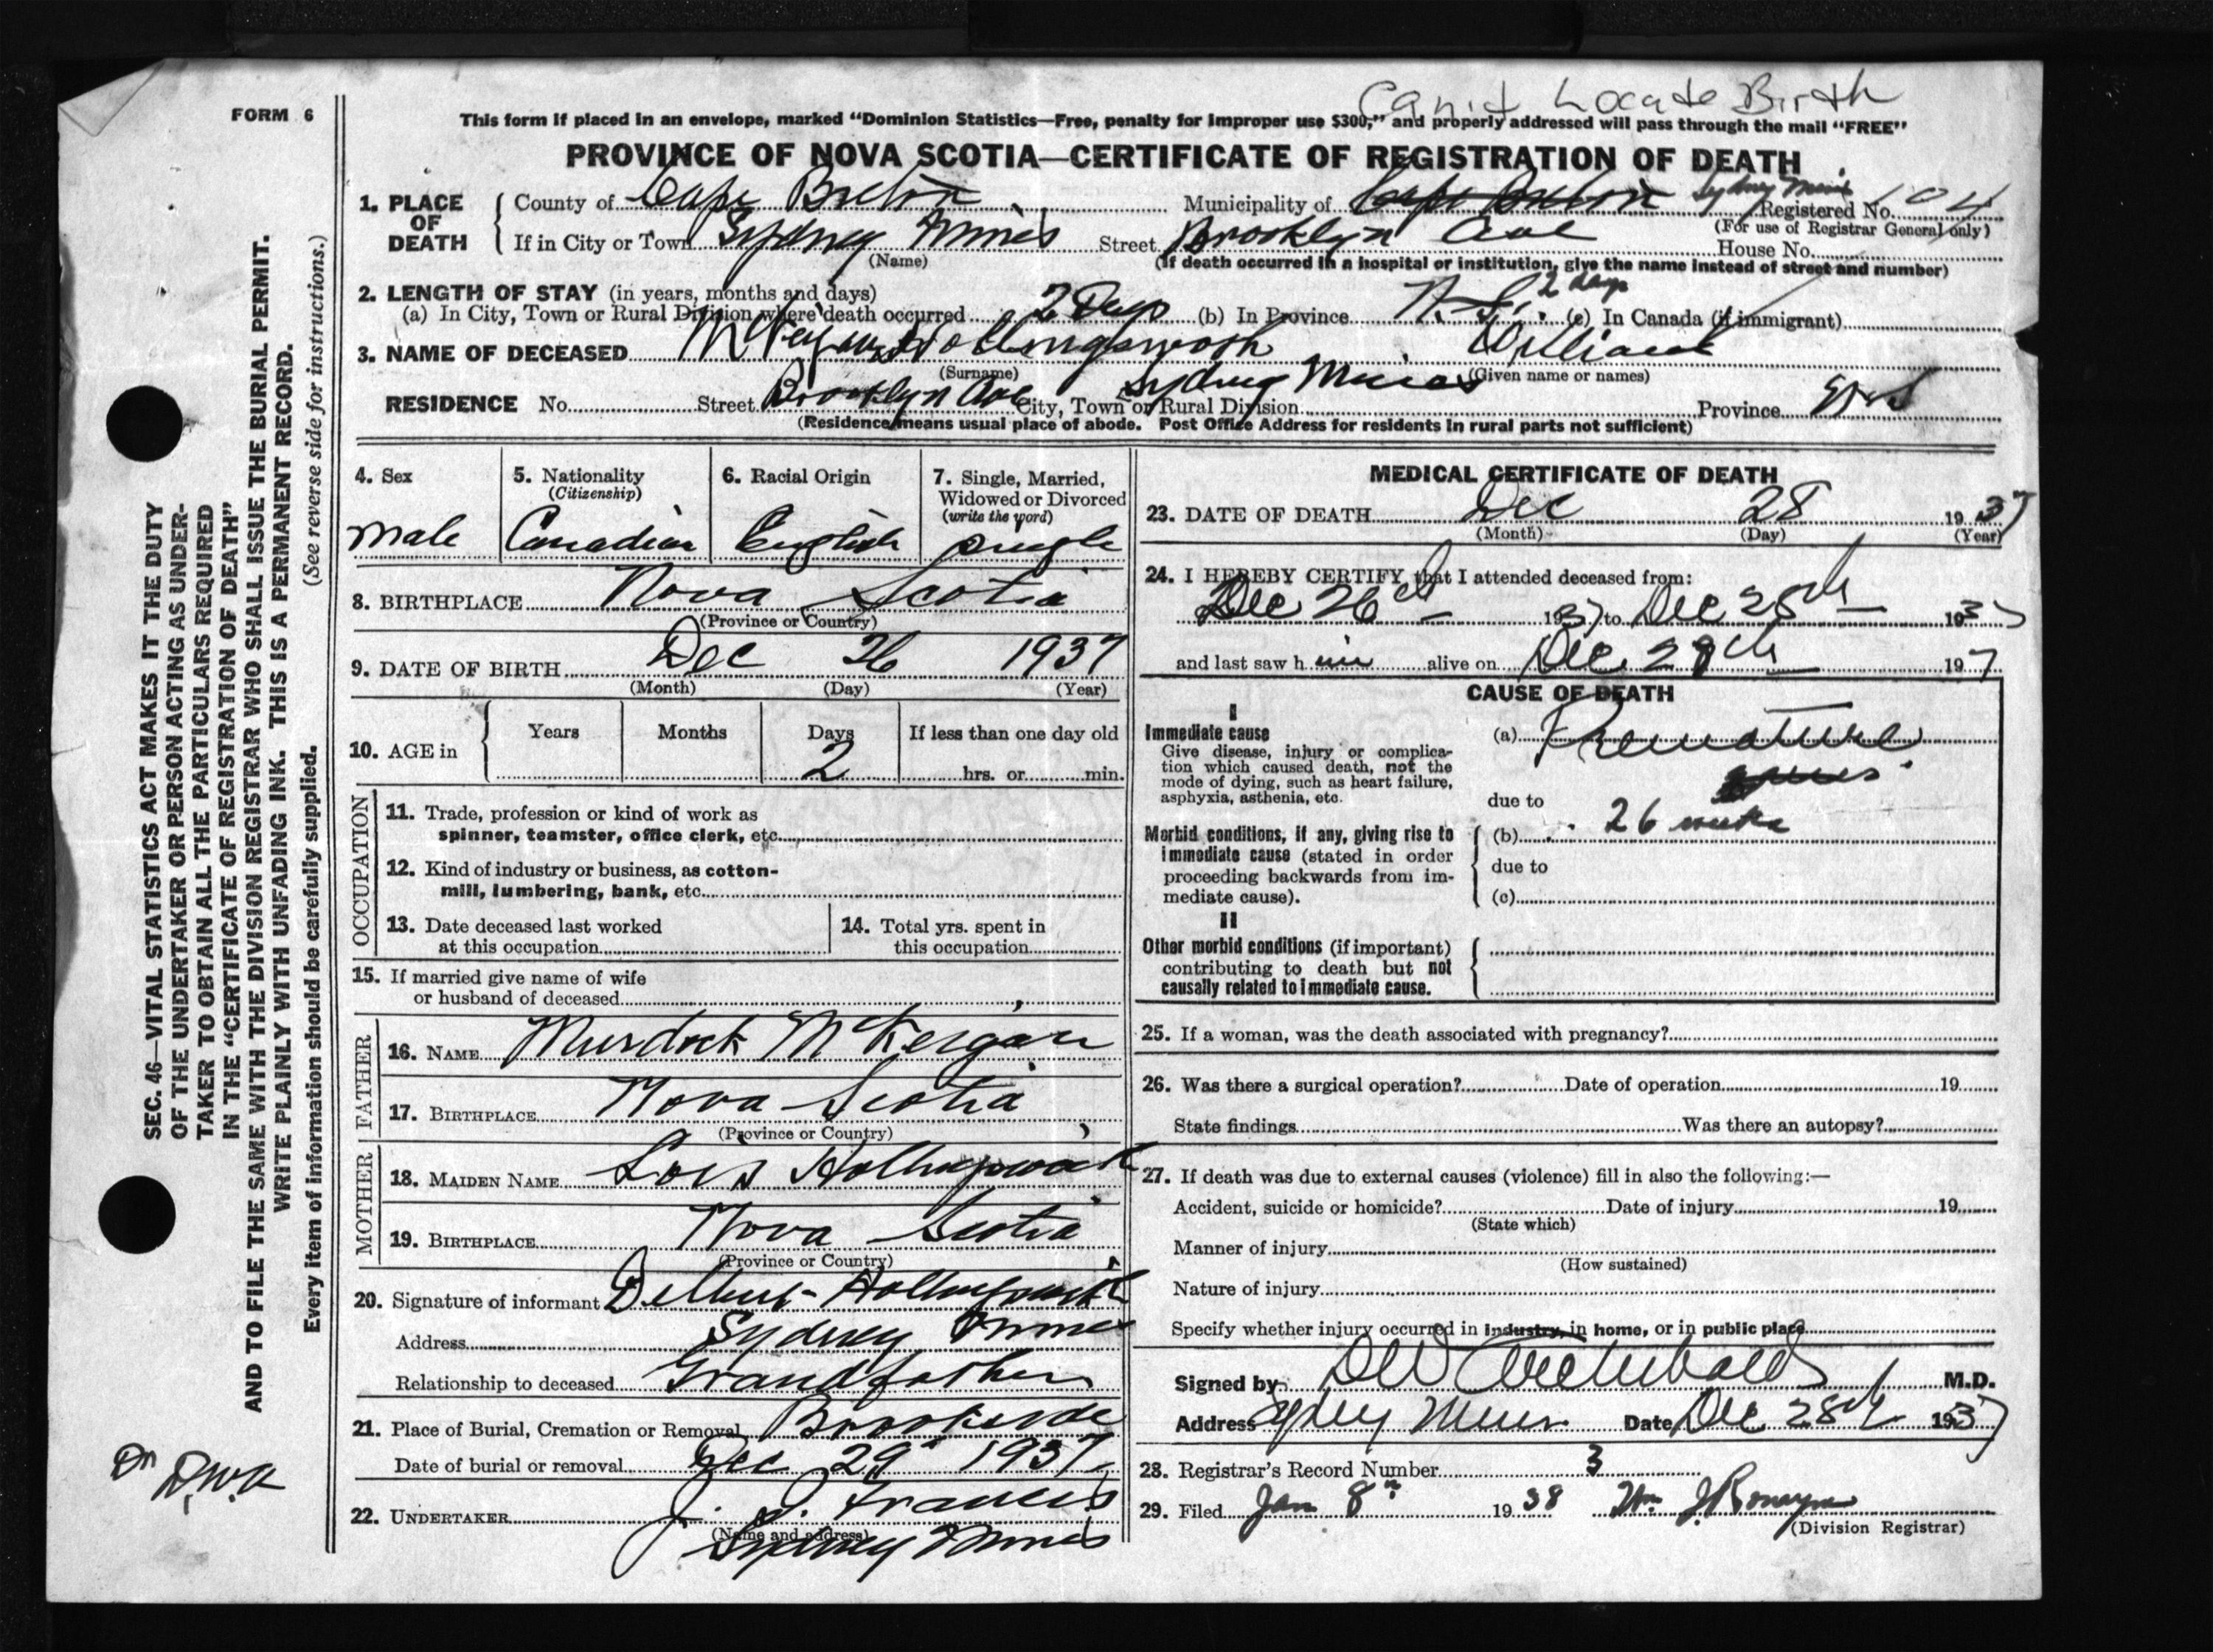 Can't Locate Birth
FORM 6
This form if placed in an envelope, marked "Dominion Statistics—Free, penalty for improper use $300," and properly addressed will pass through the mail "FREE"
PROVINCE OF NOVA SCOTIA—CERTIFICATE OF REGISTRATION OF DEATH
1. PLACE OF DEATH County of Cape Breton Municipality of Cape Breton Sydney Mines Registered No. 104
(For use of Registrar General only)
If in City or Town Sydney Mines Street Brooklyn Ave House No.
(Name) (If death occurred in a hospital or institution, give the name instead of street and number)
2. LENGTH OF STAY (in years, months and days)
(a) In City, Town or Rural Division where death occurred 2 Days (b) In Province N.S. 2 days (c) In Canada (if immigrant)
3. NAME OF DECEASED Hollingsworth William
(Surname) (Given name or names)
RESIDENCE No. Street Brooklyn Ave City, Town or Rural Division Sydney Mines Province N.S
(Residence means usual place of abode. Post Office Address for residents in rural parts not sufficient)
4. Sex
male
5. Nationality
(Citizenship)
Canadian
6. Racial Origin
English
7. Single, Married,
Widowed or Divorced
(write the word)
Single
8. BIRTHPLACE Nova Scotia
(Province or Country)
9. DATE OF BIRTH Dec 26 1937
(Month) (Day) (Year)
10. AGE in Years Months Days If less than one day old
2 hrs. or min.
OCCUPATION
11. Trade, profession or kind of work as
spinner, teamster, office clerk, etc.
12. Kind of industry or business, as cotton-
mill, lumbering, bank, etc.
13. Date deceased last worked
at this occupation
14. Total yrs. spent in
this occupation
15. If married give name of wife
or husband of deceased
FATHER
16. NAME Murdock McKeigan
17. BIRTHPLACE Nova Scotia
(Province or Country)
MOTHER
18. MAIDEN NAME Lois Hollingsworth
19. BIRTHPLACE Nova Scotia
(Province or Country)
20. Signature of informant Delbert Hollingsworth
Address Sydney Mines
Relationship to deceased Grandfather
21. Place of Burial, Cremation or Removal Brookside
Date of burial or removal Dec 29 1937
22. UNDERTAKER J. J. Francis
(Name and address)
Sydney Mines
MEDICAL CERTIFICATE OF DEATH
23. DATE OF DEATH Dec 28 1937
(Month) (Day) (Year)
24. I HEREBY CERTIFY that I attended deceased from:
Dec 26th 1937 to Dec 28th 1937
and last saw him alive on Dec. 28th 197
CAUSE OF DEATH
I
Immediate cause
Give disease, injury or complica-
tion which caused death, not the
mode of dying, such as heart failure,
asphyxia, asthenia, etc.
(a) Premature
due to
Morbid conditions, if any, giving rise to
immediate cause (stated in order
proceeding backwards from im-
mediate cause).
(b) 26 weeks
due to
(c)
II
Other morbid conditions (if important)
contributing to death but not
causally related to immediate cause.
25. If a woman, was the death associated with pregnancy?
26. Was there a surgical operation? Date of operation 19
State findings Was there an autopsy?
27. If death was due to external causes (violence) fill in also the following:—
Accident, suicide or homicide? Date of injury 19
(State which)
Manner of injury
(How sustained)
Nature of injury
Specify whether injury occurred in industry, in home, or in public place
Signed by DW Archibald M.D.
Address Sydney Mines Date Dec 28th 1937
28. Registrar's Record Number 3
29. Filed Jan 8th 1938 Wm
(Division Registrar)
SEC. 46—VITAL STATISTICS ACT MAKES IT THE DUTY
OF THE UNDERTAKER OR PERSON ACTING AS UNDER-
TAKER TO OBTAIN ALL THE PARTICULARS REQUIRED
IN THE "CERTIFICATE OF REGISTRATION OF DEATH"
AND TO FILE THE SAME WITH THE DIVISION REGISTRAR WHO SHALL ISSUE THE BURIAL PERMIT.
WRITE PLAINLY WITH UNFADING INK. THIS IS A PERMANENT RECORD.
Every item of information should be carefully supplied. (See reverse side for instructions.)
Dr D.W.A